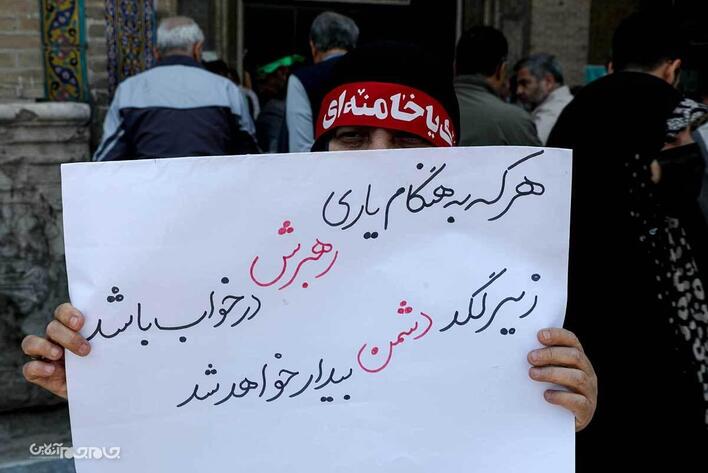 یا خامنه‌ای
هر که به هنگام یاری
رهبرش
در خواب باشد
زیر لگد دشمن
بیدار خواهد شد
جام‌جم آنلاین